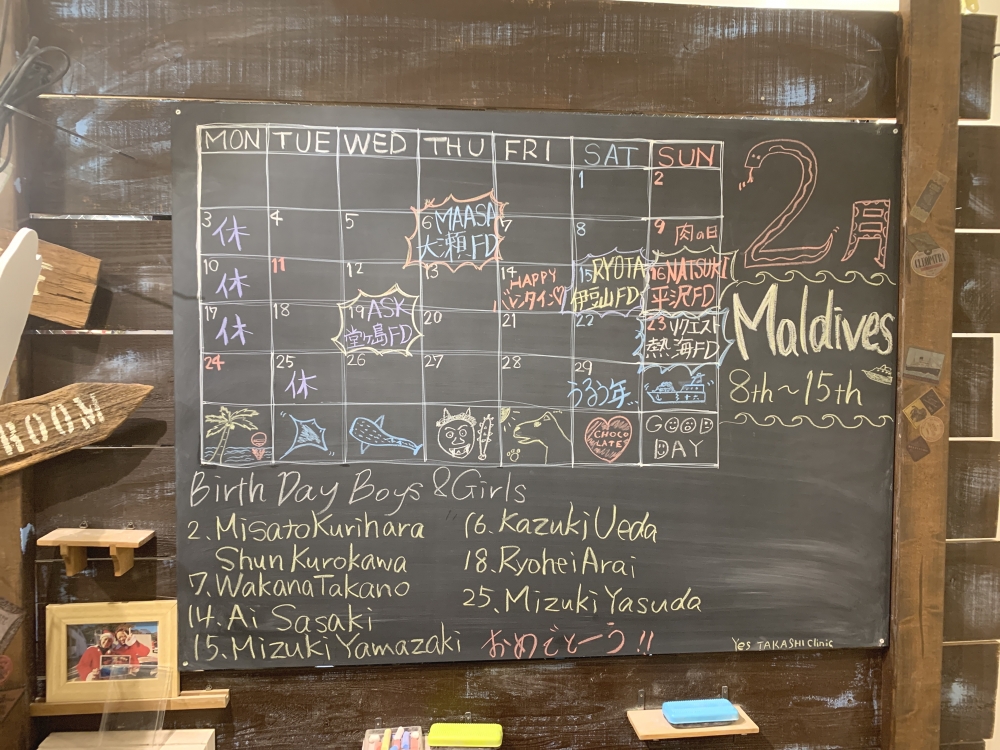 MON TUE WED THU FRI SAT SUN
1 2
3 休 4 5 6 MAASA 7 8 9 肉の日
大瀬FD
10 休 11 12 13 14 HAPPY 15 RYOTA 16 NATSUKI
バレンタイン♡ 伊豆山FD 平沢FD
17 休 18 19 ASK 20 21 22 23 リクエスト
堂ヶ島FD 熱海FD
24 25 休 26 27 28 29 うるう年..
CHOCO
LATE
GOOD
DAY
2月
Maldives
8th~15th
Birth Day Boys & Girls
2. Misato Kurihara
Shun Kurokawa
7. Wakana Takano
14. Ai Sasaki
15. Mizuki Yamazaki
16. Kazuki Ueda
18. Ryohei Arai
25. Mizuki Yasuda
おめでとーう!!
Yes TAKASHI Clinic
ROOM
CLEOPATRA